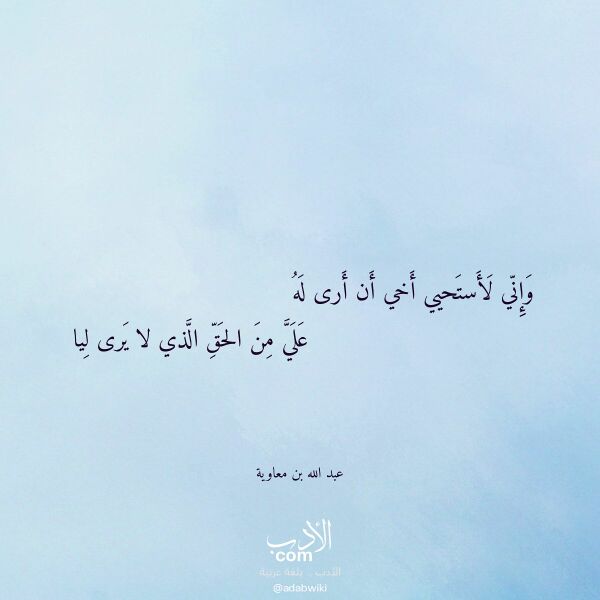 وَإِنّي لَأَستَحيي أَخي أَن أَرى لَهُ
عَلَيَّ مِنَ الحَقِّ الَّذي لا يَرى لِيا
عبد الله بن معاوية
الأدب
com
الأدب .. بلغة عربية
@adabwiki